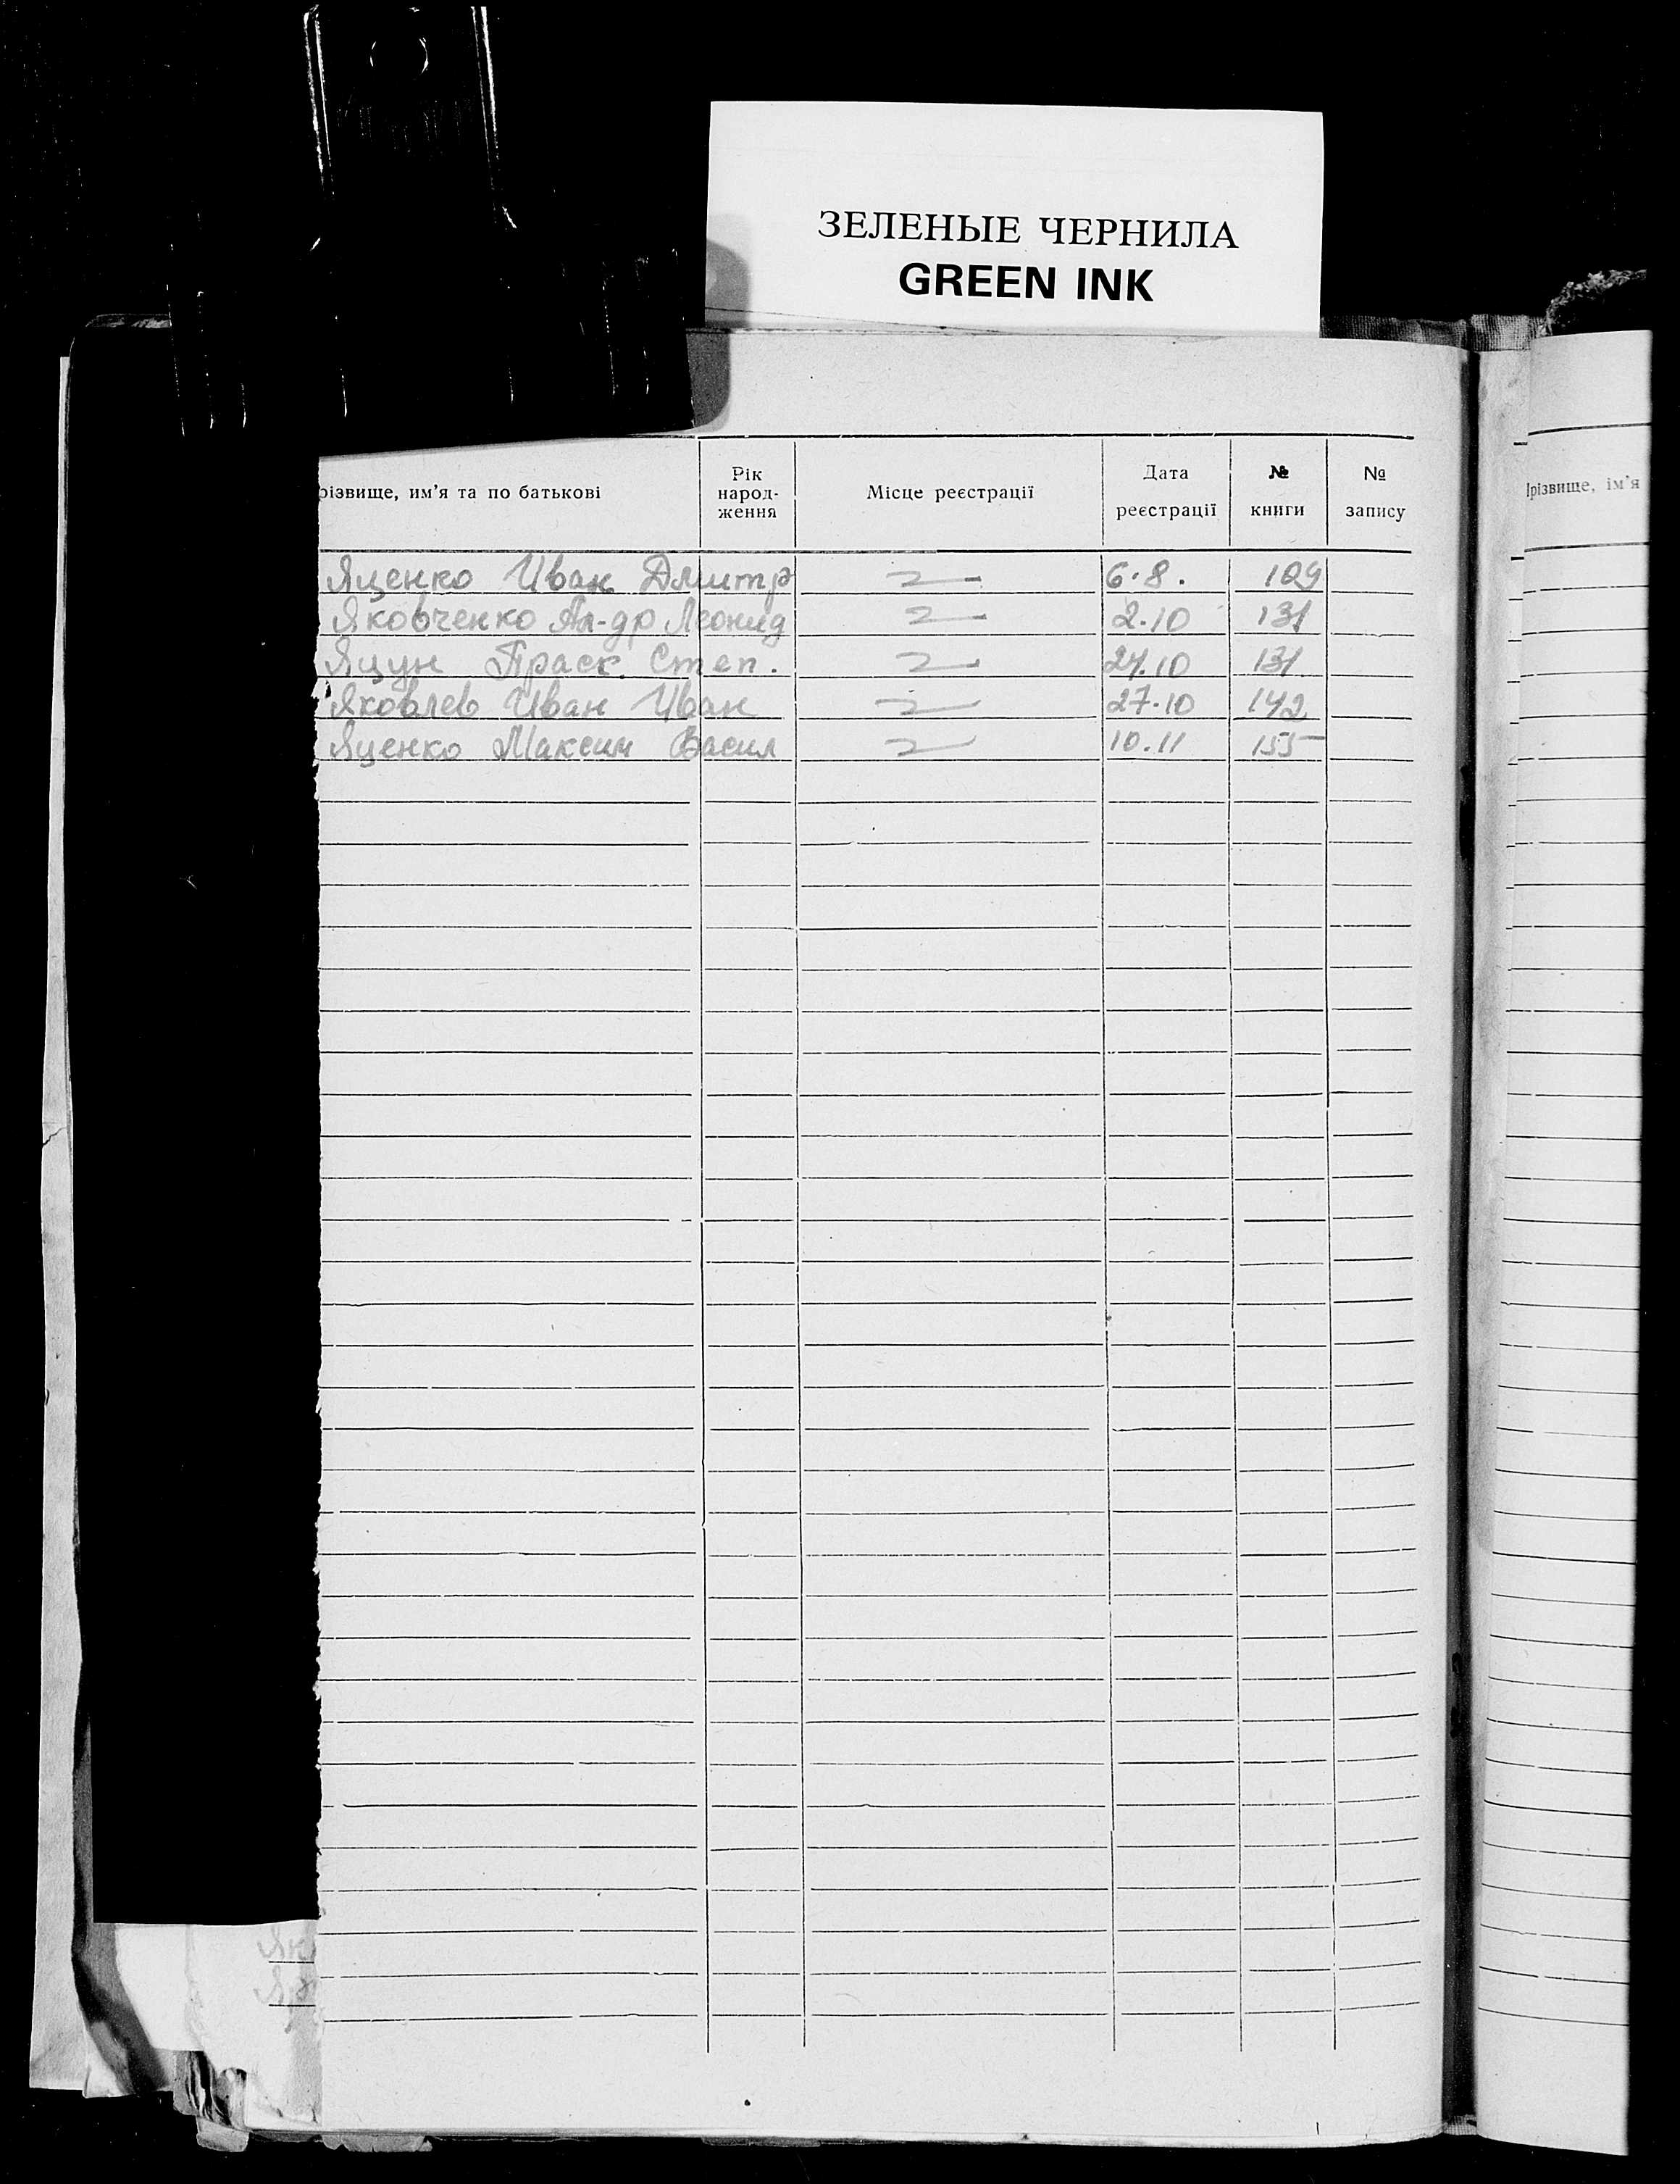 ЗЕЛЕНЫЕ ЧЕРНИЛА
GREEN INK
різвище, им’я та по батькові Рік народ-ження Місце реєстрації Дата реєстрації № книги № запису
Яценко Иван Дмитр 6.8. 109
Яковченко Ал-др Леонид 2.10 131
Яцун Праск. Степ. 10 131
Яковлев Иван Иван 27.10 142
Яценко Максим Васил 10.11 155
різвище, ім’я